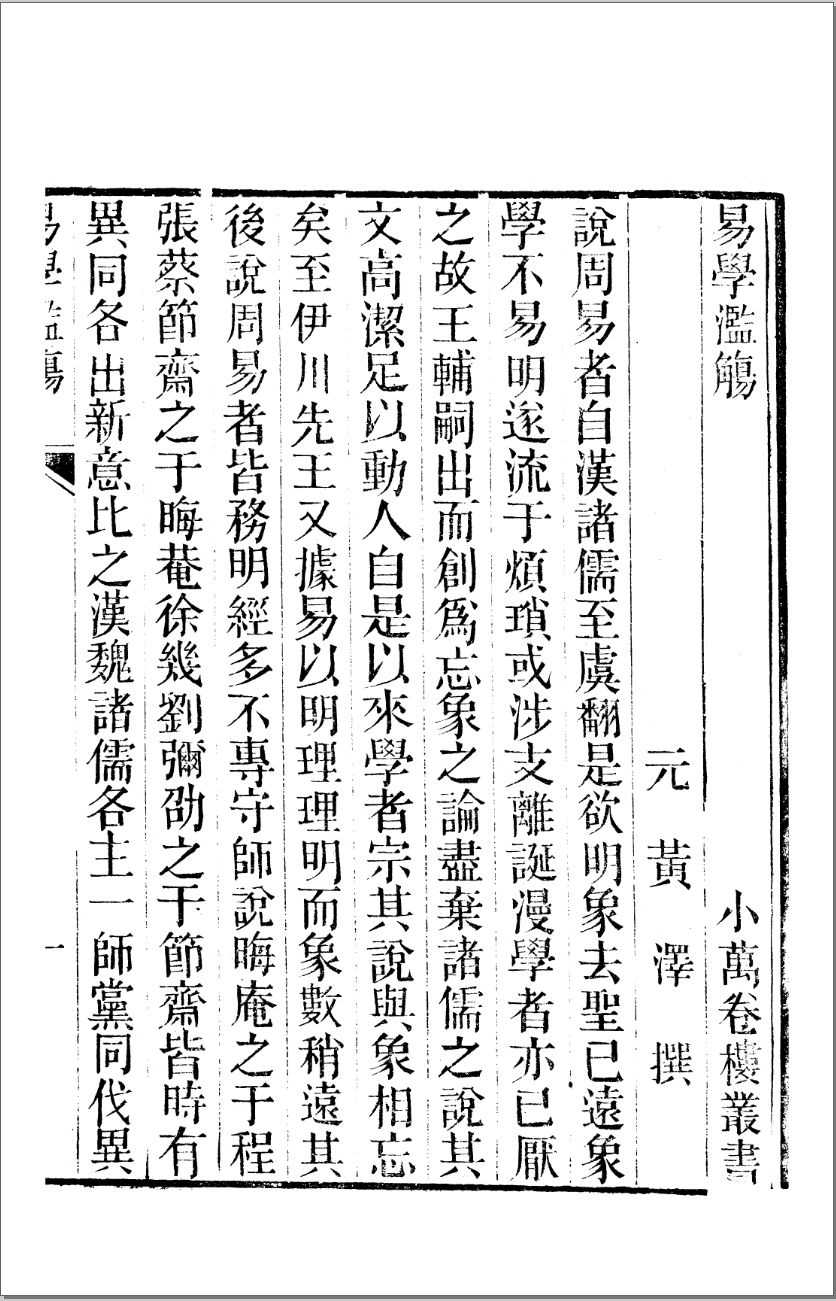 易學濫觴　小萬卷樓叢書
元　黃　澤　撰
說周易者自漢諸儒至虞翻是欲明象去聖已遠象
學不易明遂流于煩瑣或涉支離誕漫學者亦已厭
之故王輔嗣出而創爲忘象之論盡棄諸儒之說其
文高潔足以動人自是以來學者宗其說與象相忘
矣至伊川先王又據易以明理理明而象數稍遠其
後說周易者皆務明經多不專守師說晦庵之于程
張蔡節齋之于晦菴徐幾劉彌劭之于節齋皆時有
異同各出新意比之漢魏諸儒各主一師黨同伐異
易學濫觴　一